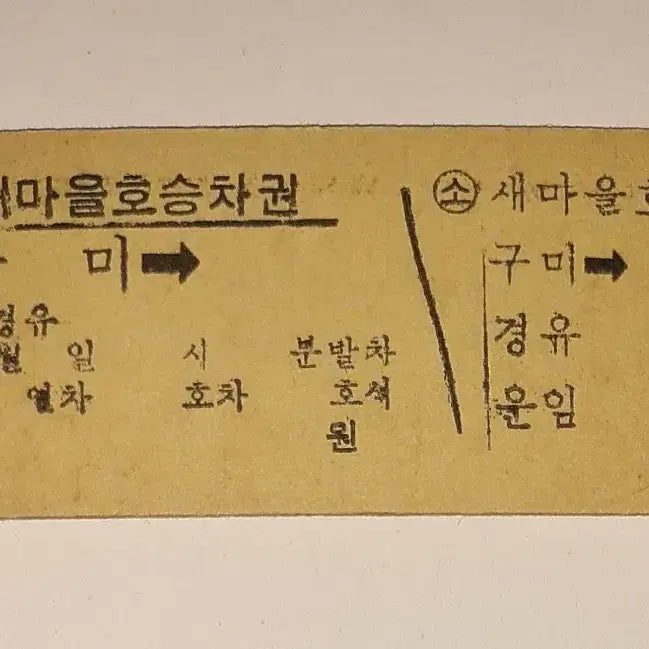 새마을호승차권
구 미➡
경유
월 일 시 분발차
열차 호차 호석
원
㉦ 새마을호
구미➡
경유
운임